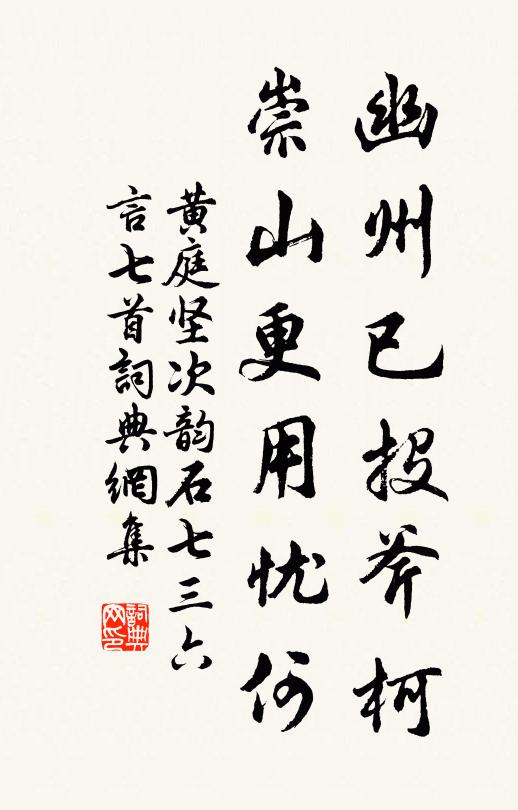 幽州已投斧柯
崇山更用忧何
黄庭坚次韵石七三六
言七首詞典網集
詞典网印